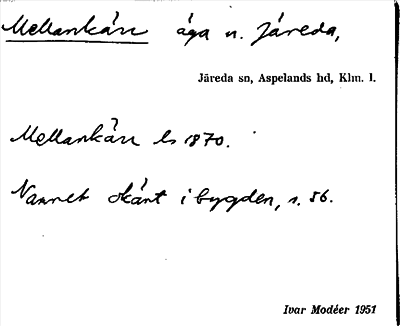 Mellankärr äga n. Järeda,
Järeda sn, Aspelands hd, Klm. l.
Mellankärr ls 1870.
Namnet okänt i bygden, s. 56.
Ivar Modéer 1951